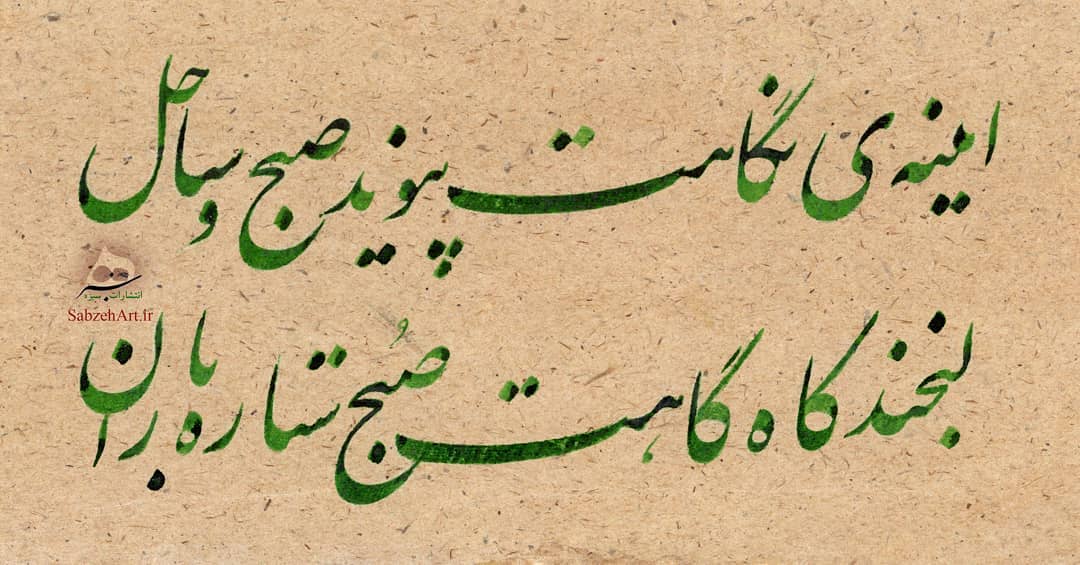 ایینه ی نگاهت پیوند صبح و ساحل
انتشارات سبزه
SabzehArt.ir
لبخند گاه گاهت صُبح ستاره باران